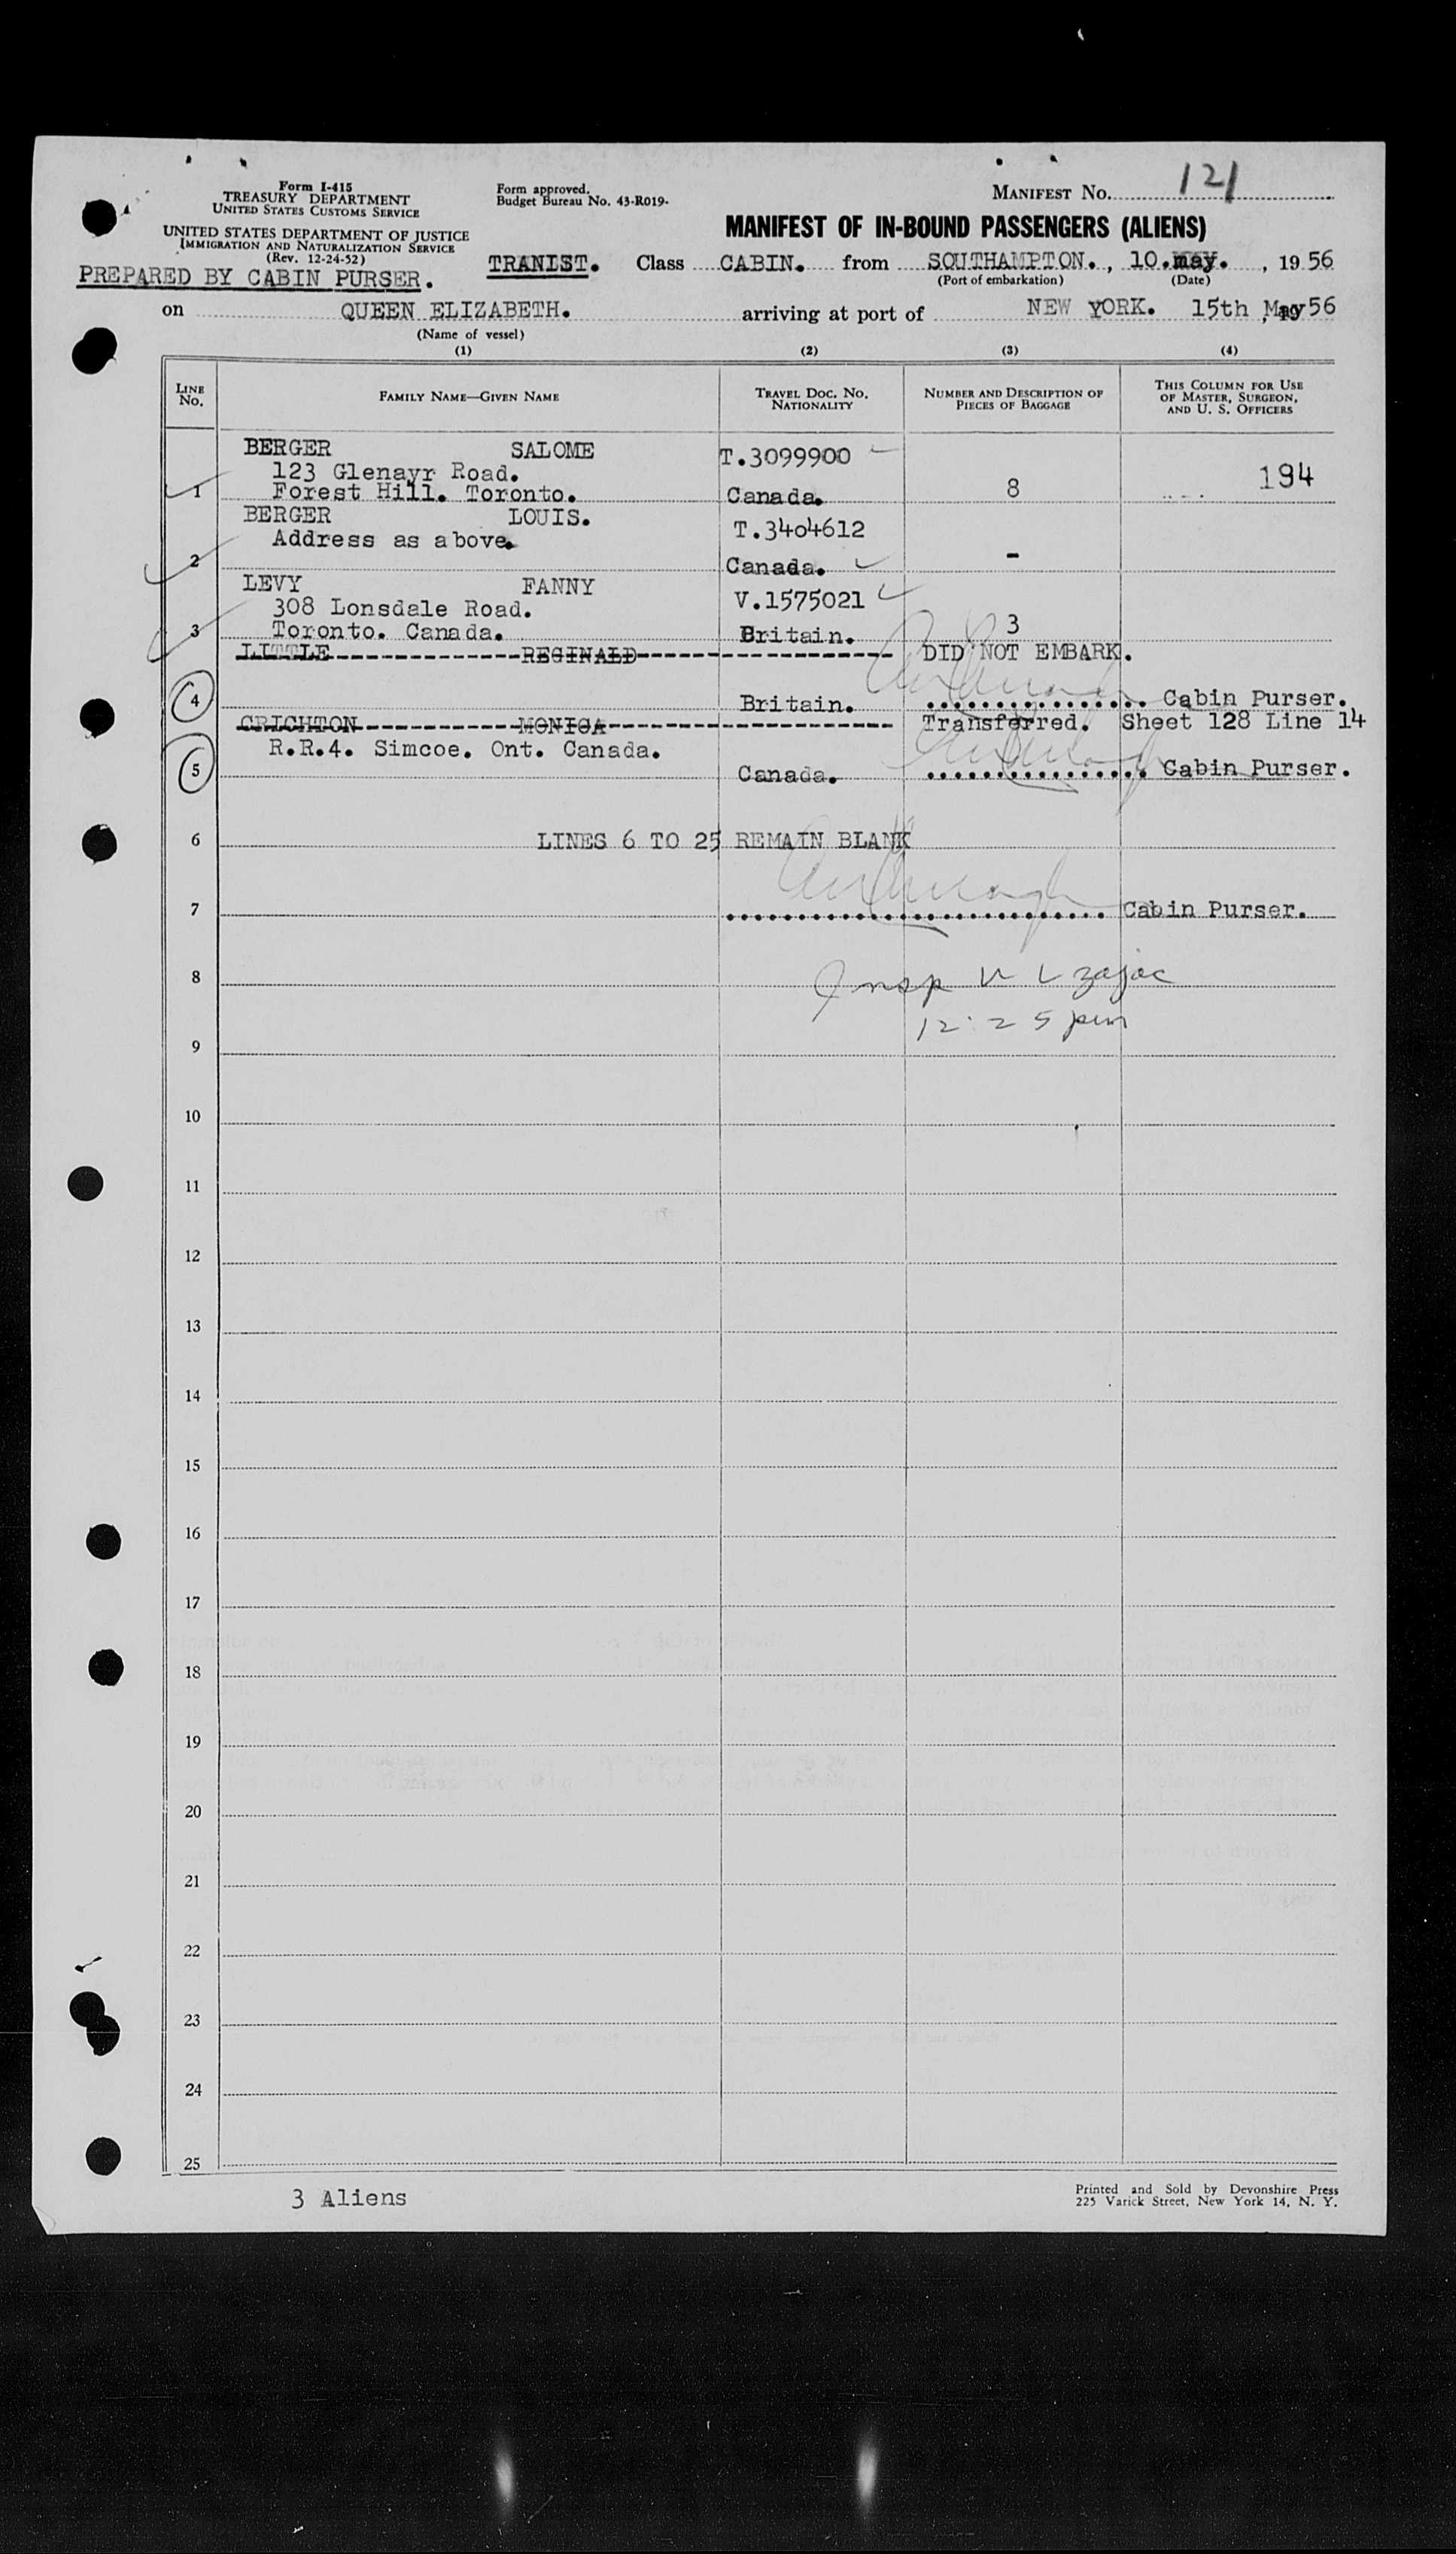 Form I-415
TREASURY DEPARTMENT
UNITED STATES CUSTOMS SERVICE
UNITED STATES DEPARTMENT OF JUSTICE
IMMIGRATION AND NATURALIZATION SERVICE
(Rev. 12-24-52)
PREPARED BY CABIN PURSER.
Form approved.
Budget Bureau No. 43-R019-
MANIFEST NO. 121
MANIFEST OF IN-BOUND PASSENGERS (ALIENS)
TRANIST. Class CABIN. from SOUTHAMPTON. , 10.May. , 1956
(Port of embarkation) (Date)
on QUEEN ELIZABETH. arriving at port of NEW YORK. 15th May 56
(Name of vessel)
(1) (2) (3) (4)
LINE NO. FAMILY NAME—GIVEN NAME TRAVEL DOC. NO. NATIONALITY NUMBER AND DESCRIPTION OF PIECES OF BAGGAGE THIS COLUMN FOR USE OF MASTER, SURGEON, AND U. S. OFFICERS
BERGER SALOME T.3099900
123 Glenayr Road.
1 Forest Hill. Toronto. Canada. 8 194
BERGER LOUIS. T.3404612
Address as above.
2 Canada. -
LEVY FANNY V.1575021
308 Lonsdale Road.
3 Toronto. Canada. Britain. 3
LITTLE REGINALD DID NOT EMBARK.
4 Britain. Cabin Purser.
CRICHTON MONICA Transferred. Sheet 128 Line 14
R.R.4. Simcoe. Ont. Canada.
5 Canada. Cabin Purser.
6 LINES 6 TO 25 REMAIN BLANK
7 Cabin Purser.
8 Insp V L Zajac
12:25 pm
9
10
11
12
13
14
15
16
17
18
19
20
21
22
23
24
25
3 Aliens
Printed and Sold by Devonshire Press
225 Varick Street, New York 14, N. Y.